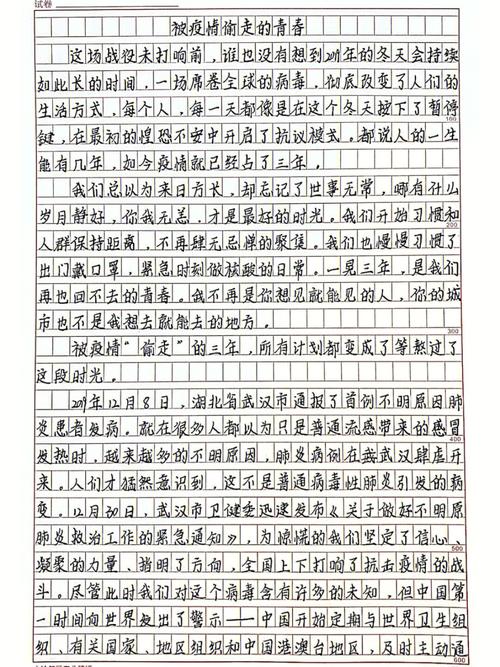 试卷
被疫情偷走的青春
这场战役未打响前，谁也没有想到2019年的冬天会持续
如此长的时间，一场席卷全球的病毒，彻底改变了人们的
生活方式，每个人，每一天都像是在这个冬天按下了暂停
键，在最初的惶恐不安中开启了抗议模式。都说人的一生
100
能有几年，如今疫情就已经占了三年。
我们总以为来日方长，却忘记了世事无常，哪有什么
岁月静好，你我无恙，才是最好的时光。我们开始习惯和
200
人群保持距离，不再肆无忌惮的聚集。我们也慢慢习惯了
出门戴口罩，紧急时刻做核酸的日常。一晃三年，是我们
再也回不去的青春。我不再是你想见就能见的人，你的城
市也不是我想去就能去的地方。
300
被疫情“偷走”的三年，所有计划都变成了等熬过了
这段时光。
2019年12月8日，湖北省武汉市通报了首例不明原因肺
炎患者发病。就在很多人都以为只是普通流感带来的感冒
400
发热时，越来越多的不明原因，肺炎病例在武汉肆虐开
来。人们才猛然意识到，这不是普通病毒性肺炎引发的病
变。12月30日，武汉市卫健委迅速发布《关于做好不明原
肺炎救治工作的紧急通知》，为惊慌的我们坚定了信心、
500
凝聚的力量、指明了方向，全国上下打响了抗击疫情的战
斗。尽管此时我们对这个病毒含有许多的未知，但中国第
一时间向世界发出了警示——中国开始定期与世界卫生组
织、有关国家、地区组织和中国港澳台地区，及时主动通
600